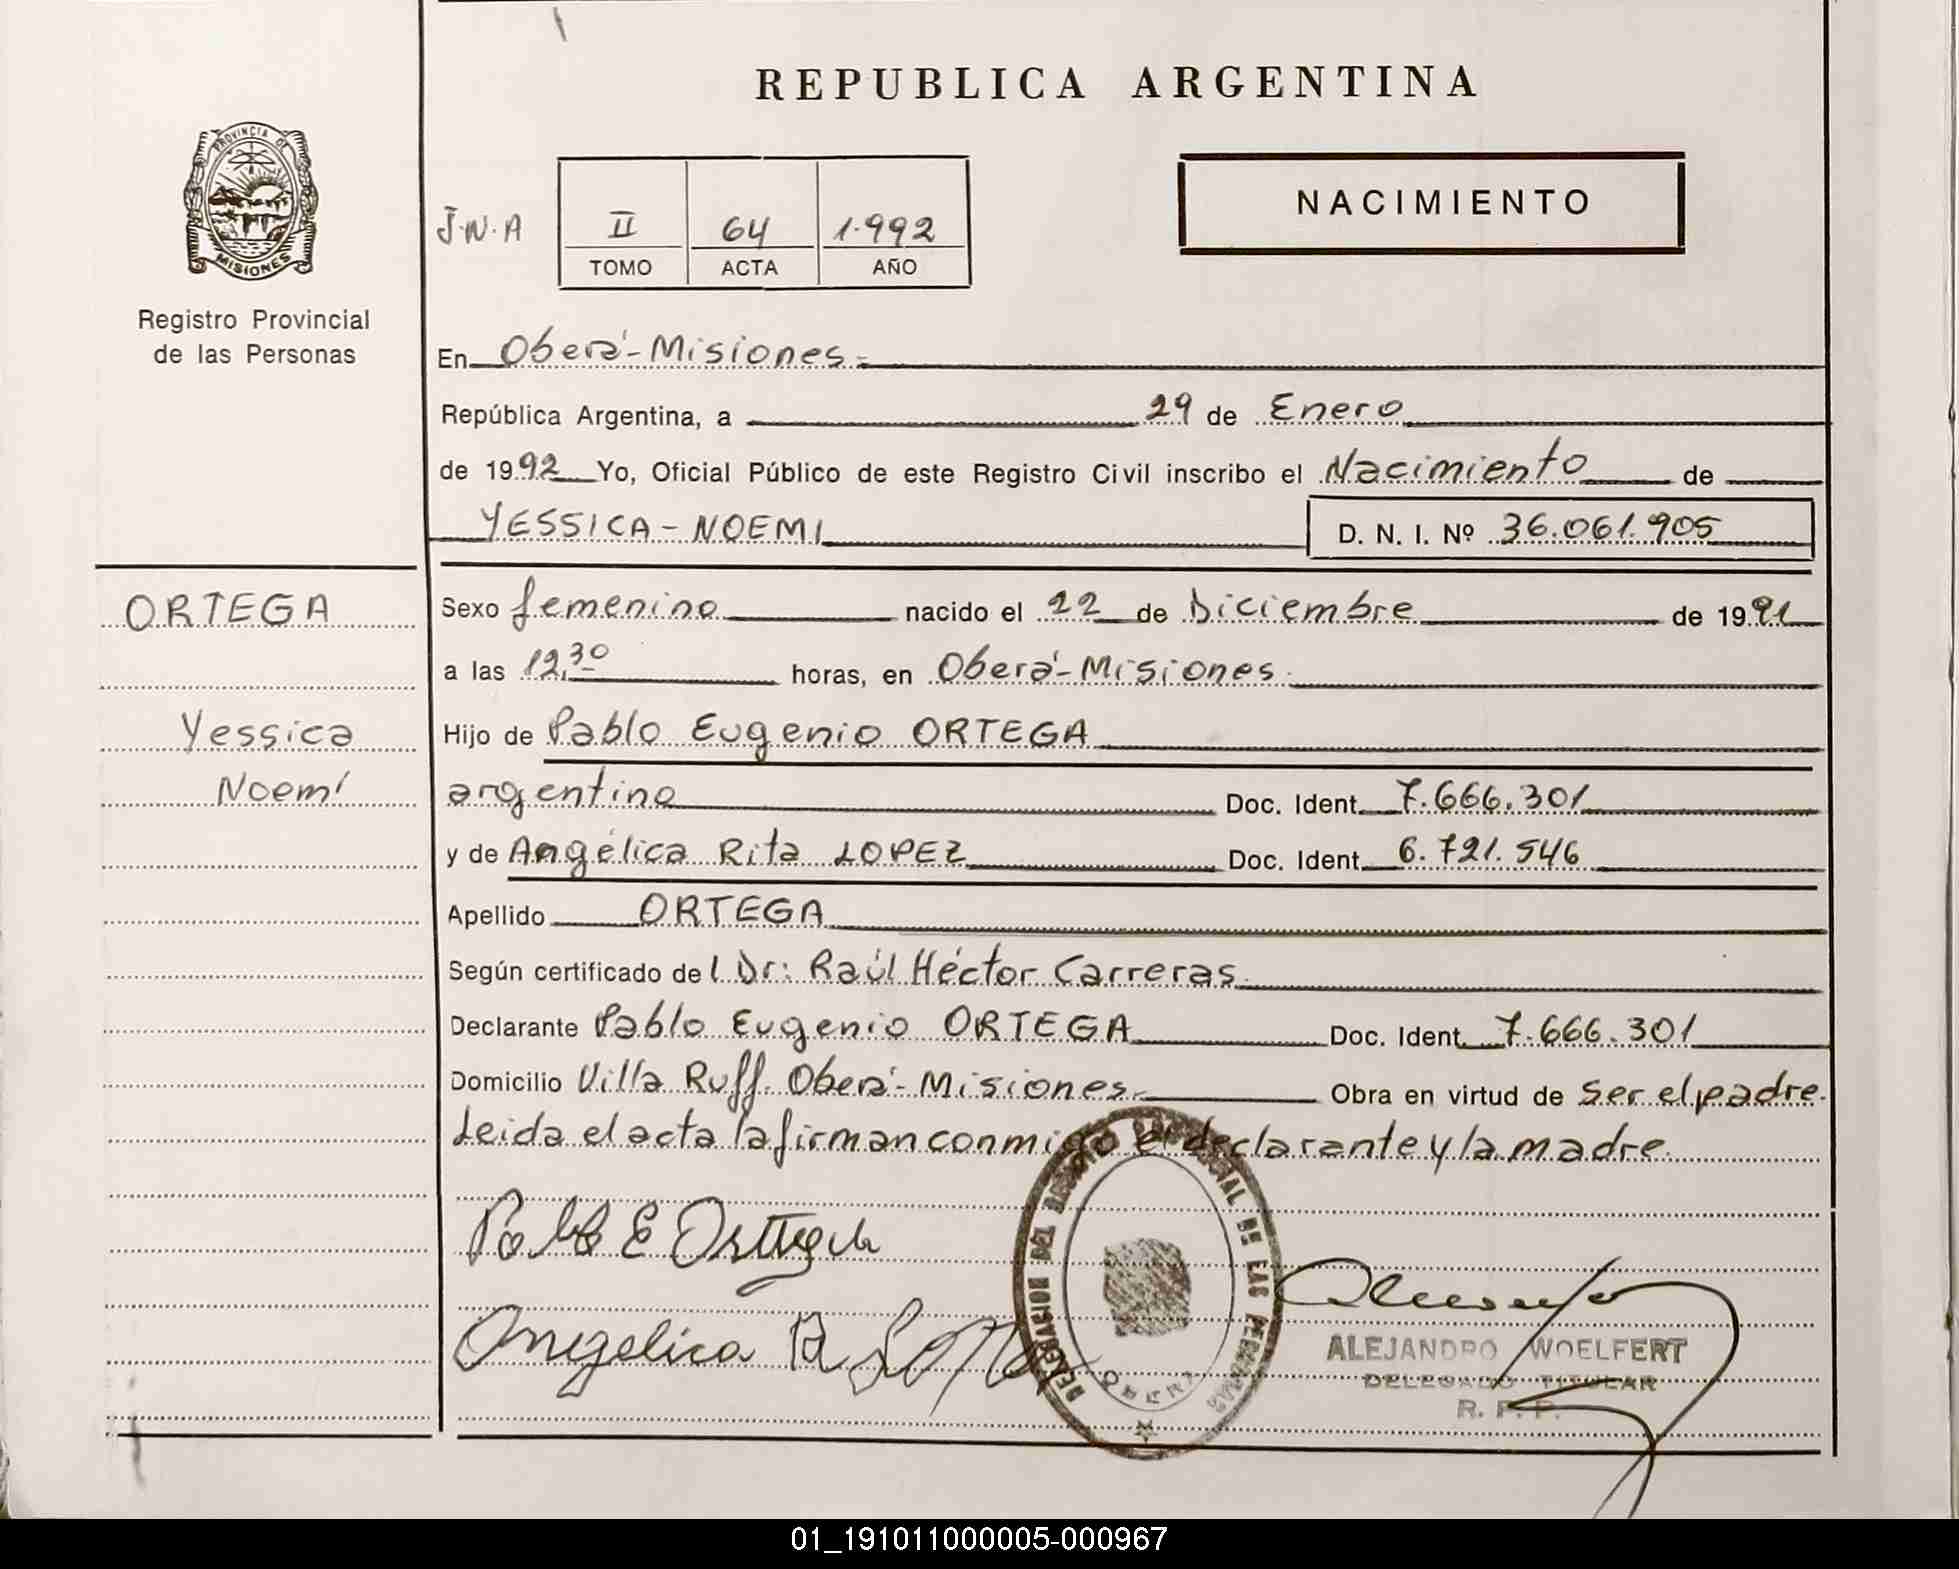 REPUBLICA ARGENTINA
PROVINCIA DE
MISIONES
Registro Provincial
de las Personas
NACIMIENTO
J.N.A II 64 1.992
TOMO ACTA AÑO
En Oberá-Misiones.-
República Argentina, a 29 de Enero
de 1992 Yo, Oficial Público de este Registro Civil inscribo el Nacimiento de
YESSICA-NOEMI D. N. I. Nº 36.061.905
ORTEGA
Yessica
Noemí
Sexo femenino nacido el 22 de Diciembre de 1991
a las 12,30 horas, en Oberá-Misiones.
Hijo de Pablo Eugenio ORTEGA
argentino Doc. Ident. 7.666.301
y de Angélica Rita LOPEZ Doc. Ident. 6.721.546
Apellido ORTEGA
Según certificado de l Dr: Raúl Héctor Carreras.
Declarante Pablo Eugenio ORTEGA Doc. Ident. 7.666.301
Domicilio Villa Ruff. Oberá-Misiones. Obra en virtud de ser el padre.
Leida el acta la firman conmigo el declarante y la madre.
Pablo E Orttega
Angelica R Lopez
DELEGACION DEL REGISTRO PROVINCIAL DE LAS PERSONAS
OBERA
ALEJANDRO WOELFERT
DELEGADO TITULAR
R. P. P.
01_191011000005-000967